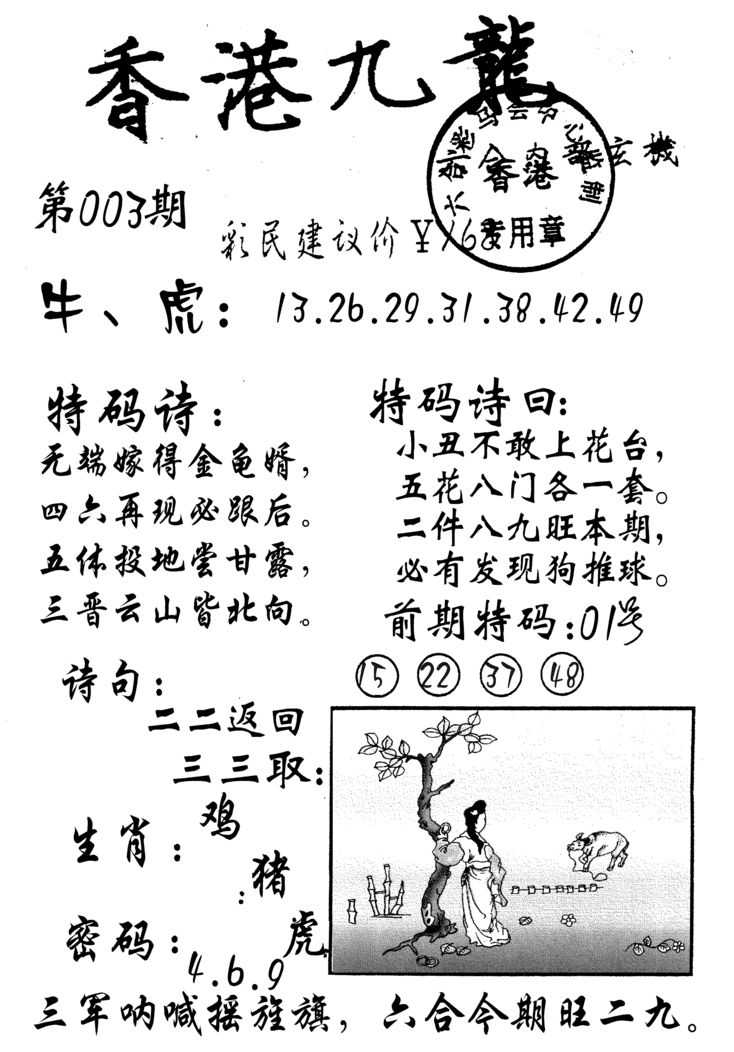 香港九龍
玄機
香港
专用章
第003期
彩民建议价¥168
牛、虎：13.26.29.31.38.42.49
特码诗：
无端嫁得金龟婿，
四六再现必跟后。
五体投地尝甘露，
三晋云山皆北向。
特码诗曰：
小丑不敢上花台，
五花八门各一套。
二件八九旺本期，
必有发现狗推球。
前期特码：01号
15 22 37 48
诗句：
二二返回
三三取：
生肖：鸡
：猪
虎
密码：
4.6.9
三军呐喊摇旌旗，六合今期旺二九。